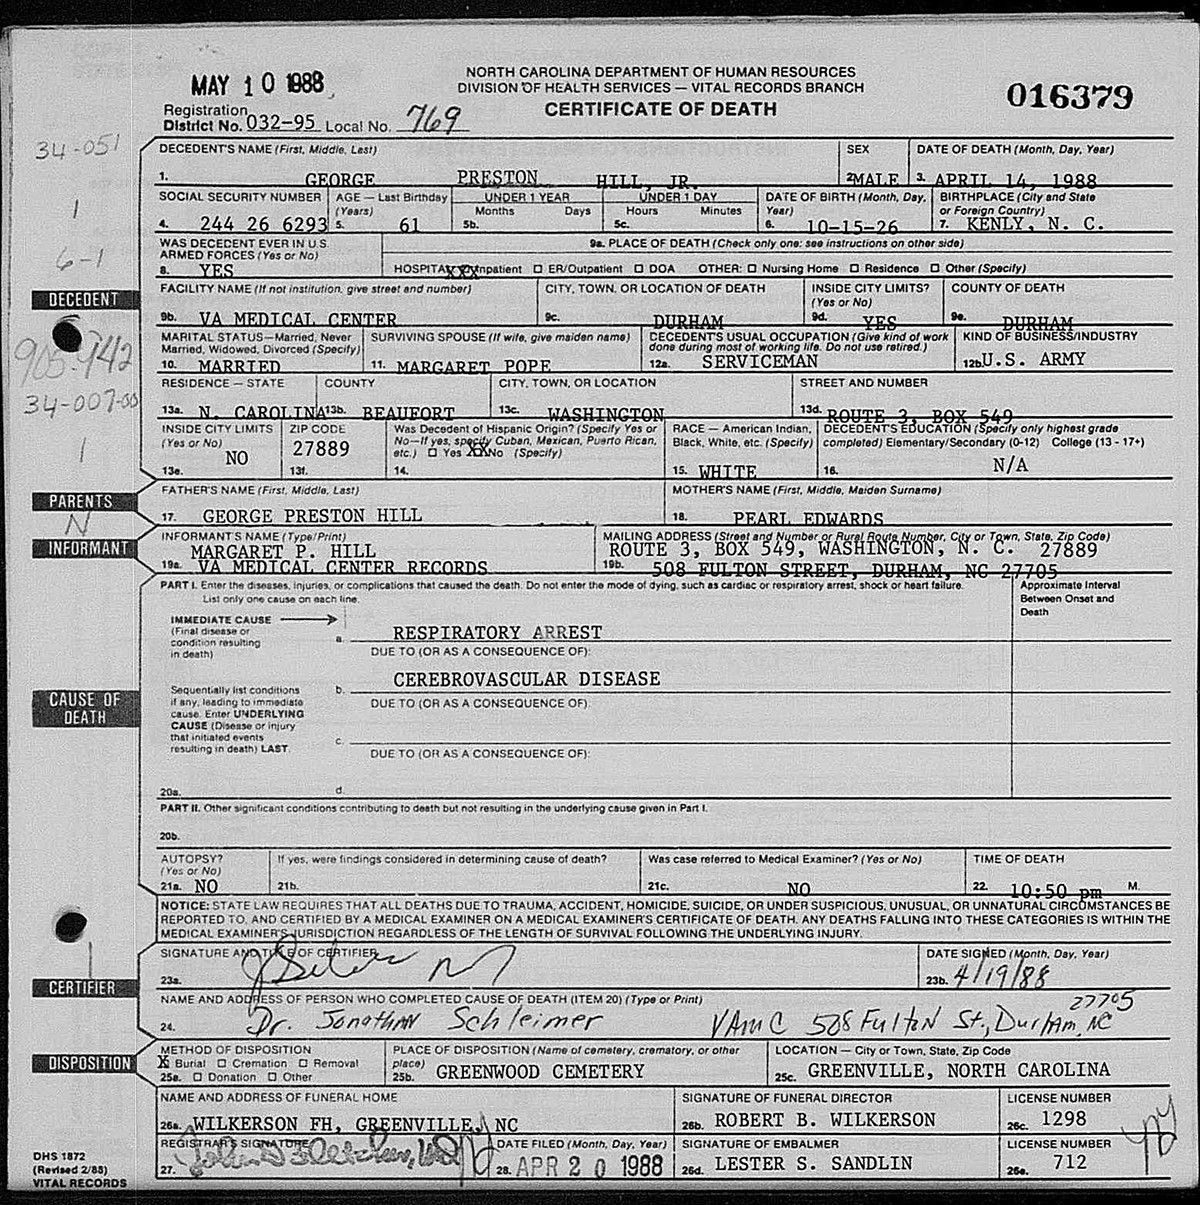 NORTH CAROLINA DEPARTMENT OF HUMAN RESOURCES
DIVISION OF HEALTH SERVICES — VITAL RECORDS BRANCH
CERTIFICATE OF DEATH
MAY 10 1988
016379
Registration
District No. 032-95 Local No. 769
34-051
1
6-1
905-942
34-007-00
1
N
1
DECEDENT
PARENTS
INFORMANT
CAUSE OF DEATH
CERTIFIER
DISPOSITION
DECEDENT'S NAME (First, Middle, Last) SEX DATE OF DEATH (Month, Day, Year)
1. GEORGE PRESTON HILL, JR. 2. MALE 3. APRIL 14, 1988
SOCIAL SECURITY NUMBER AGE — Last Birthday (Years) UNDER 1 YEAR UNDER 1 DAY DATE OF BIRTH (Month, Day, Year) BIRTHPLACE (City and State or Foreign Country)
Months Days Hours Minutes
4. 244 26 6293 5. 61 5b. 5c. 6. 10-15-26 7. KENLY, N. C.
WAS DECEDENT EVER IN U.S. ARMED FORCES (Yes or No) 9a. PLACE OF DEATH (Check only one: see instructions on other side)
8. YES HOSPITAL XXX Inpatient ☐ ER/Outpatient ☐ DOA OTHER: ☐ Nursing Home ☐ Residence ☐ Other (Specify)
FACILITY NAME (If not institution, give street and number) CITY, TOWN, OR LOCATION OF DEATH INSIDE CITY LIMITS? (Yes or No) COUNTY OF DEATH
9b. VA MEDICAL CENTER 9c. DURHAM 9d. YES 9e. DURHAM
MARITAL STATUS—Married, Never Married, Widowed, Divorced (Specify) SURVIVING SPOUSE (If wife, give maiden name) DECEDENT'S USUAL OCCUPATION (Give kind of work done during most of working life. Do not use retired.) KIND OF BUSINESS/INDUSTRY
10. MARRIED 11. MARGARET POPE 12a. SERVICEMAN 12b. U.S. ARMY
RESIDENCE — STATE COUNTY CITY, TOWN, OR LOCATION STREET AND NUMBER
13a. N. CAROLINA 13b. BEAUFORT 13c. WASHINGTON 13d. ROUTE 3, BOX 549
INSIDE CITY LIMITS (Yes or No) ZIP CODE Was Decedent of Hispanic Origin? (Specify Yes or No—If yes, specify Cuban, Mexican, Puerto Rican, etc.) ☐ Yes XX No (Specify) RACE — American Indian, Black, White, etc. (Specify) DECEDENT'S EDUCATION (Specify only highest grade completed) Elementary/Secondary (0-12) College (13 - 17+)
13e. NO 13f. 27889 14. 15. WHITE 16. N/A
FATHER'S NAME (First, Middle, Last) MOTHER'S NAME (First, Middle, Maiden Surname)
17. GEORGE PRESTON HILL 18. PEARL EDWARDS
INFORMANT'S NAME (Type/Print) MAILING ADDRESS (Street and Number or Rural Route Number, City or Town, State, Zip Code)
MARGARET P. HILL ROUTE 3, BOX 549, WASHINGTON, N. C. 27889
19a. VA MEDICAL CENTER RECORDS 19b. 508 FULTON STREET, DURHAM, NC 27705
PART I. Enter the diseases, injuries, or complications that caused the death. Do not enter the mode of dying, such as cardiac or respiratory arrest, shock or heart failure.
List only one cause on each line.
Approximate Interval Between Onset and Death
IMMEDIATE CAUSE (Final disease or condition resulting in death)
a. RESPIRATORY ARREST
DUE TO (OR AS A CONSEQUENCE OF):
Sequentially list conditions if any, leading to immediate cause. Enter UNDERLYING CAUSE (Disease or injury that initiated events resulting in death) LAST.
b. CEREBROVASCULAR DISEASE
DUE TO (OR AS A CONSEQUENCE OF):
c.
DUE TO (OR AS A CONSEQUENCE OF):
20a. d.
PART II. Other significant conditions contributing to death but not resulting in the underlying cause given in Part I.
20b.
AUTOPSY? (Yes or No) If yes, were findings considered in determining cause of death? Was case referred to Medical Examiner? (Yes or No) TIME OF DEATH
21a. NO 21b. 21c. NO 22. 10:50 pm M.
NOTICE: STATE LAW REQUIRES THAT ALL DEATHS DUE TO TRAUMA, ACCIDENT, HOMICIDE, SUICIDE, OR UNDER SUSPICIOUS, UNUSUAL, OR UNNATURAL CIRCUMSTANCES BE
REPORTED TO, AND CERTIFIED BY A MEDICAL EXAMINER ON A MEDICAL EXAMINER'S CERTIFICATE OF DEATH. ANY DEATHS FALLING INTO THESE CATEGORIES IS WITHIN THE
MEDICAL EXAMINER'S JURISDICTION REGARDLESS OF THE LENGTH OF SURVIVAL FOLLOWING THE UNDERLYING INJURY.
SIGNATURE AND TITLE OF CERTIFIER DATE SIGNED (Month, Day, Year)
23a. 23b. 4/19/88
NAME AND ADDRESS OF PERSON WHO COMPLETED CAUSE OF DEATH (ITEM 20) (Type or Print)
24. Dr. Jonathan Schleimer VAMC 508 Fulton St., Durham, NC 27705
METHOD OF DISPOSITION PLACE OF DISPOSITION (Name of cemetery, crematory, or other place) LOCATION — City or Town, State, Zip Code
X Burial ☐ Cremation ☐ Removal
25a. ☐ Donation ☐ Other 25b. GREENWOOD CEMETERY 25c. GREENVILLE, NORTH CAROLINA
NAME AND ADDRESS OF FUNERAL HOME SIGNATURE OF FUNERAL DIRECTOR LICENSE NUMBER
26a. WILKERSON FH, GREENVILLE, NC 26b. ROBERT B. WILKERSON 26c. 1298
REGISTRAR'S SIGNATURE DATE FILED (Month, Day, Year) SIGNATURE OF EMBALMER LICENSE NUMBER
27. 28. APR 20 1988 26d. LESTER S. SANDLIN 26e. 712
DHS 1872
(Revised 2/88)
VITAL RECORDS